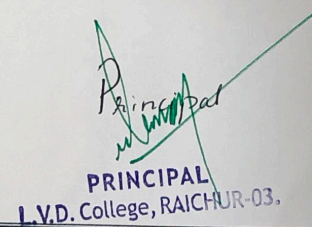 Principal
PRINCIPAL
L.V.D. College, RAICHUR-03.